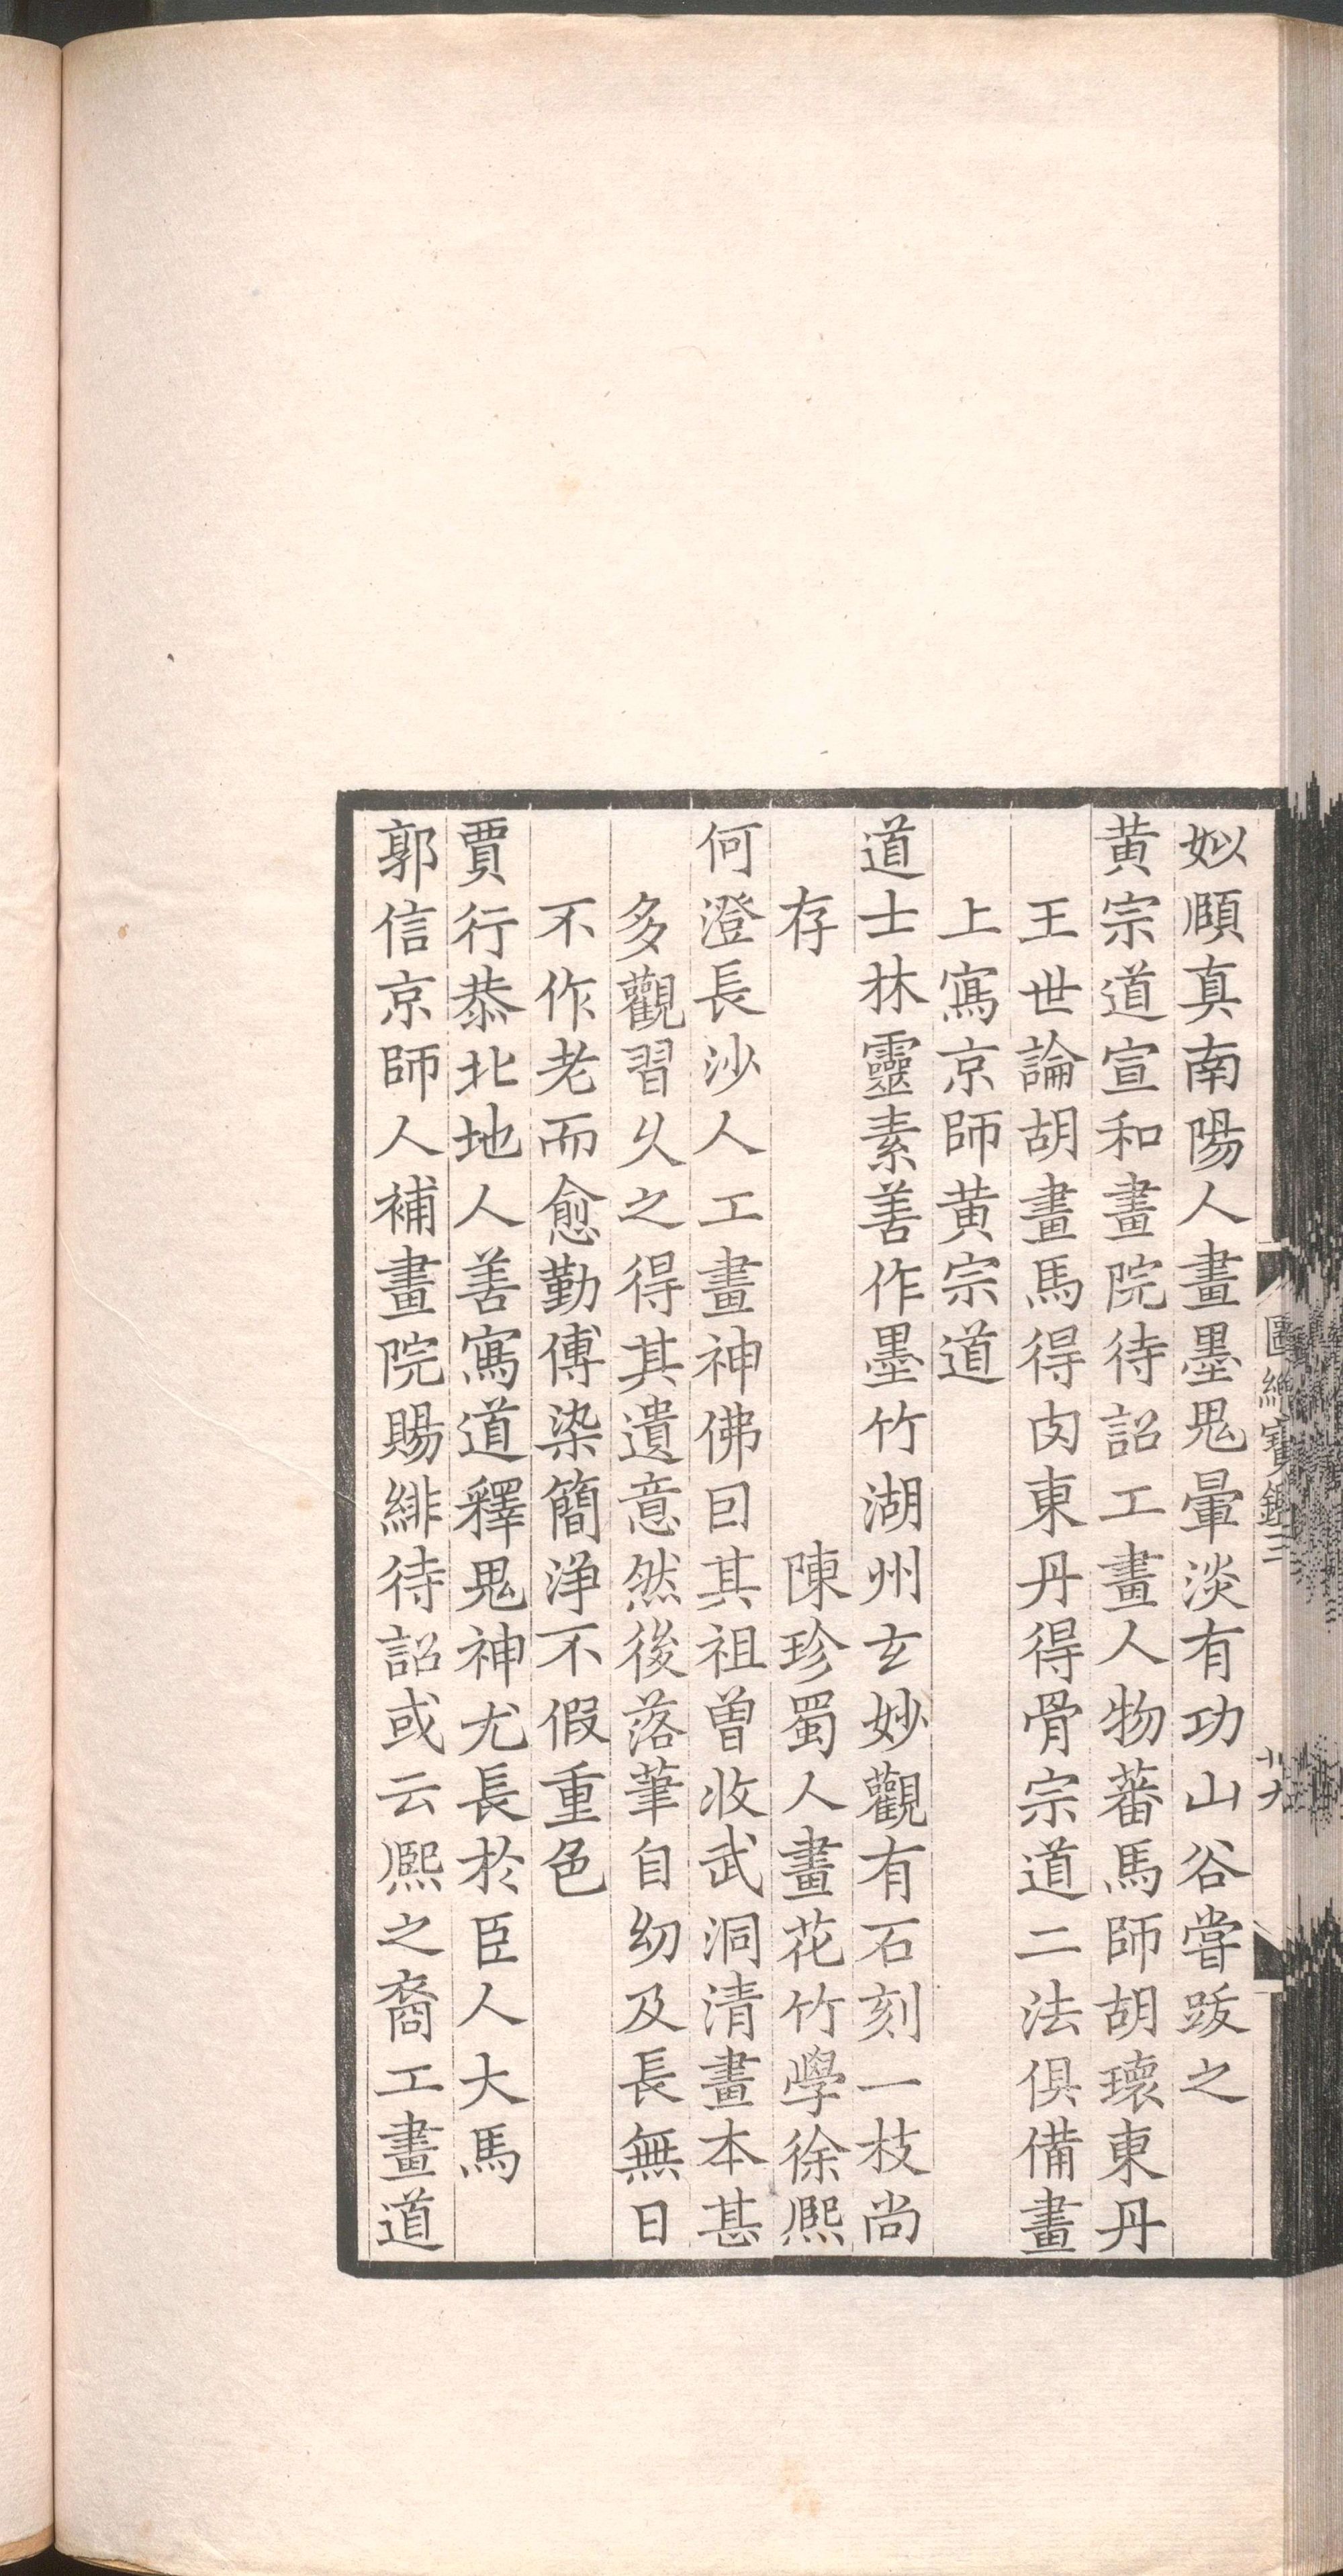 姒頤真南陽人畫墨鬼暈淡有功山谷嘗跋之
黃宗道宣和畫院待詔工畫人物蕃馬師胡瓌東丹
王世論胡畫馬得肉東丹得骨宗道二法俱備畫
上寫京師黃宗道
道士林靈素善作墨竹湖州玄妙觀有石刻一枝尚
存 陳珍蜀人畫花竹學徐熙
何澄長沙人工畫神佛因其祖曾收武洞清畫本甚
多觀習久之得其遺意然後落筆自幼及長無日
不作老而愈勤傅染簡淨不假重色
賈行恭北地人善寫道釋鬼神尤長於臣人大馬
郭信京師人補畫院賜緋待詔或云熙之裔工畫道
圖繪寶鑑三